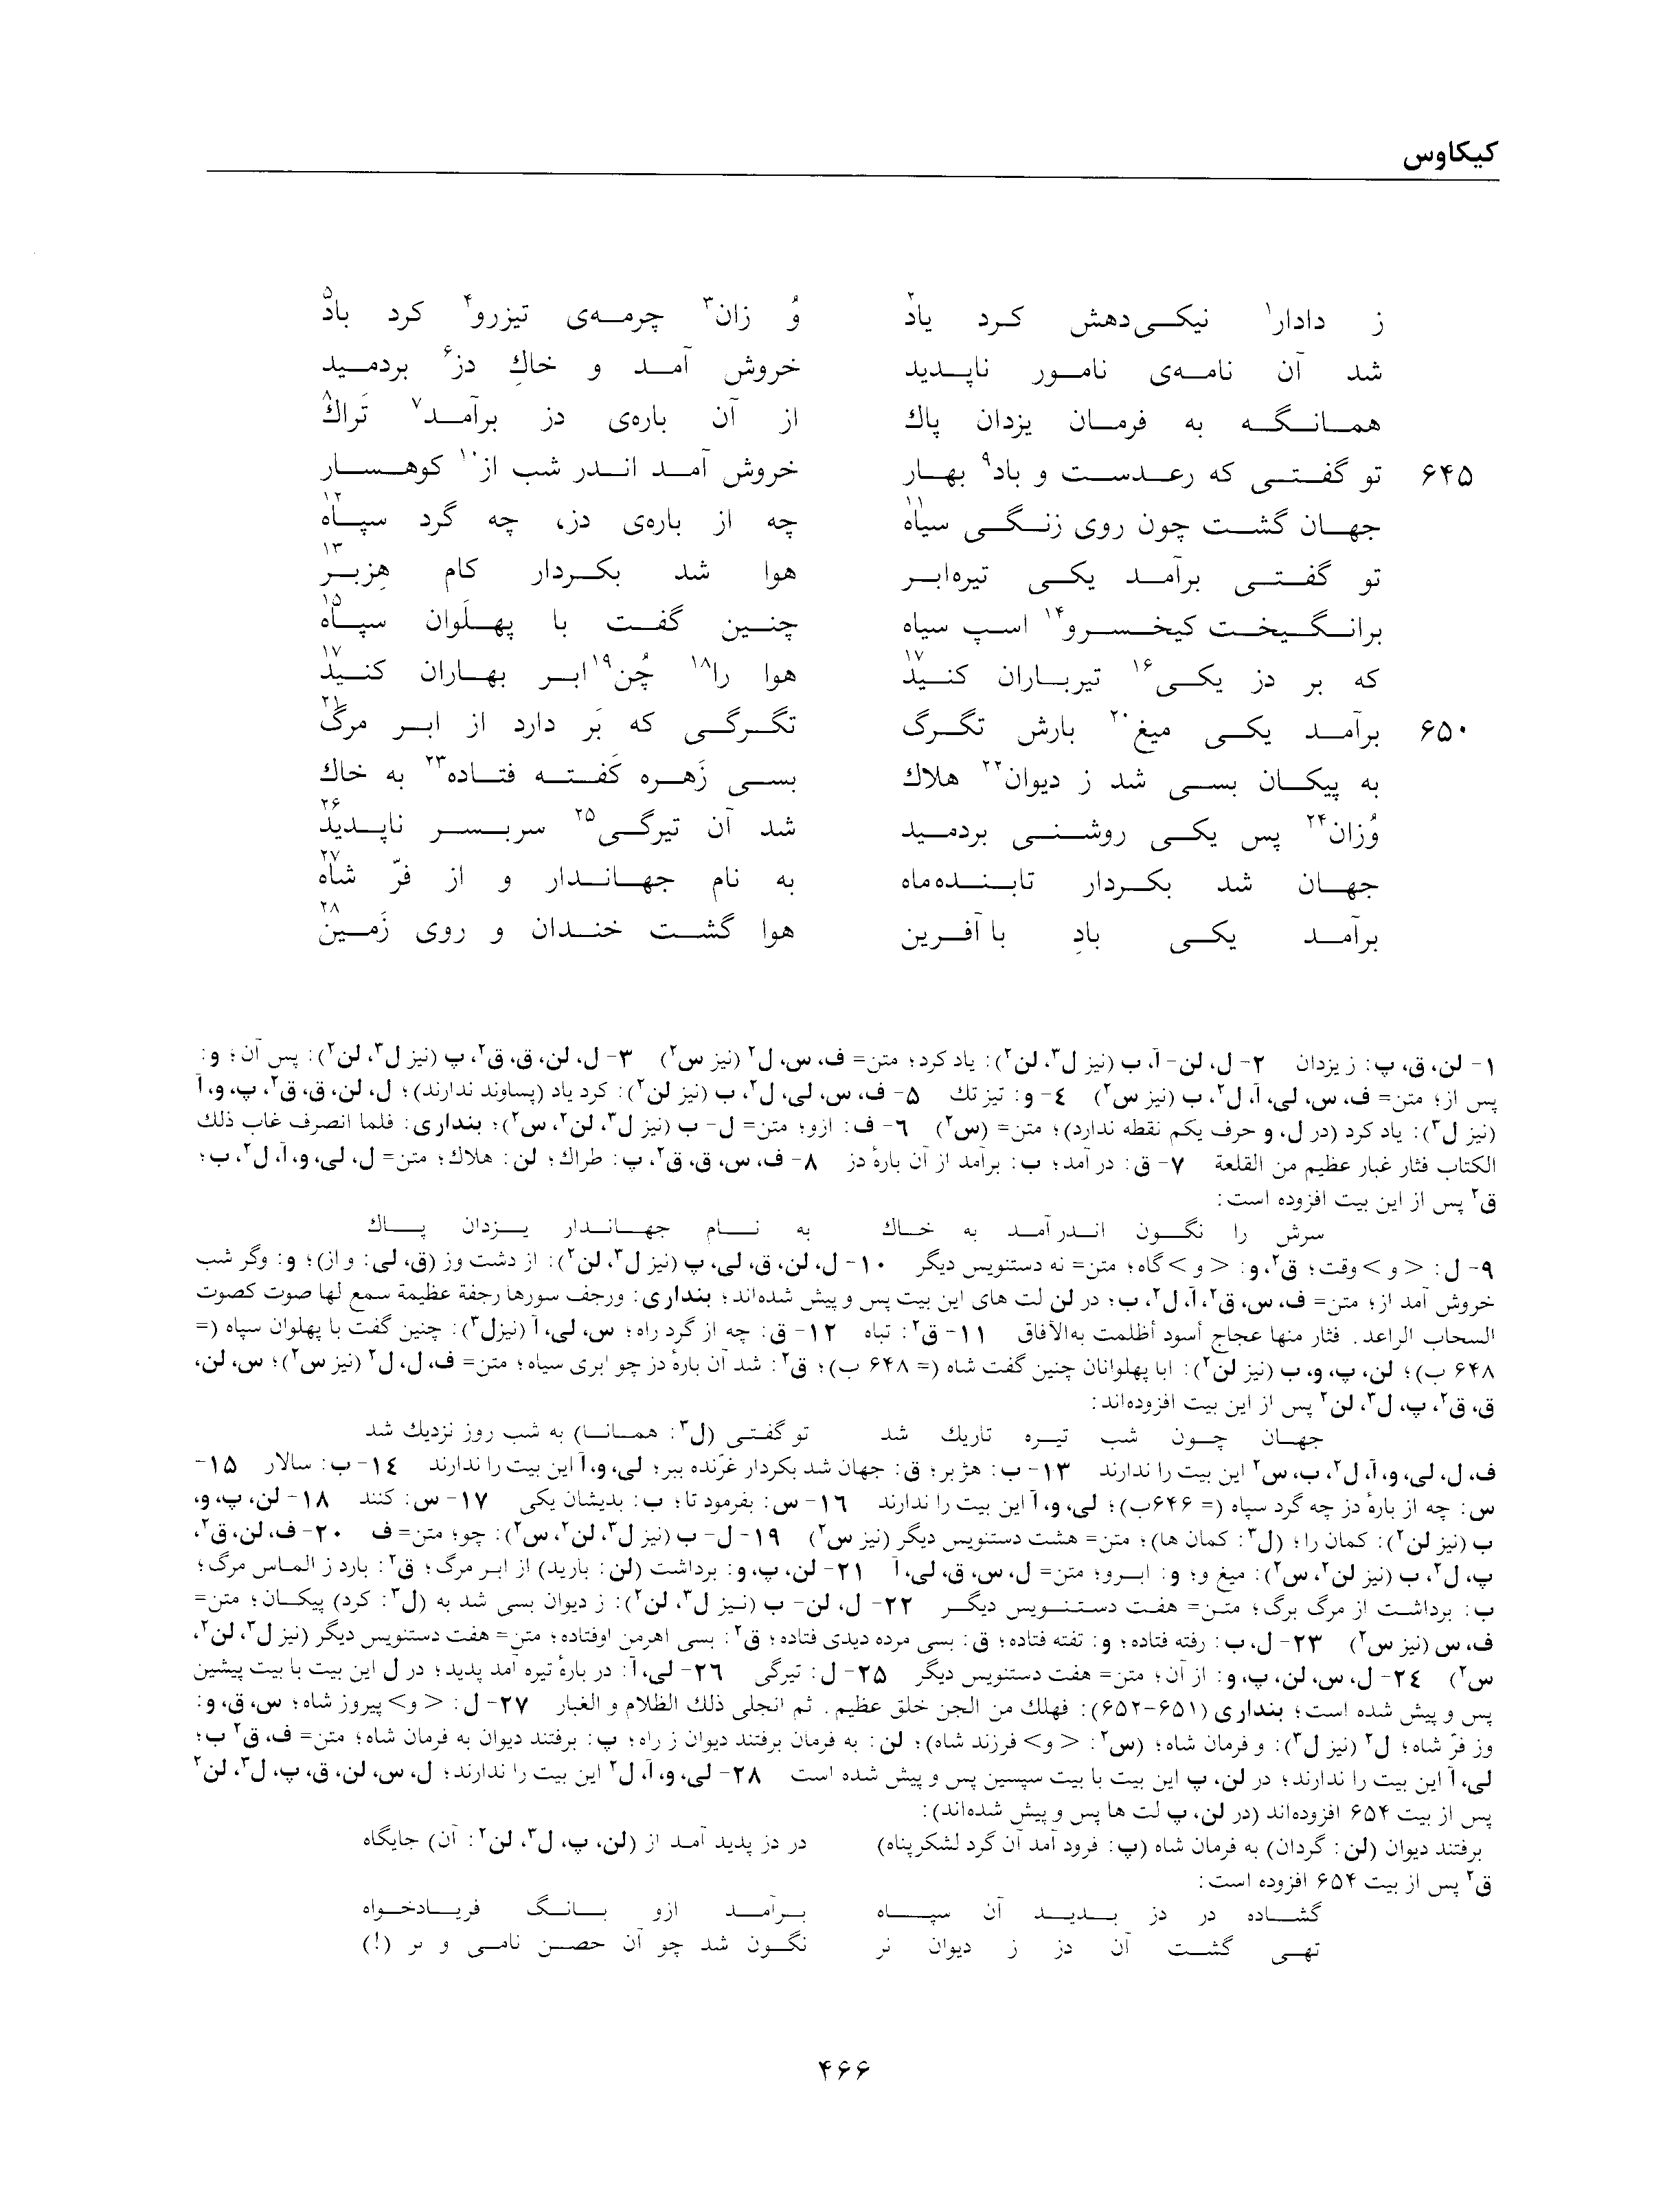 کیکاوس
ز دادار۱ نیکی‌دهش کرد یاد۲ وُ زان۳ چرمه‌ی تیزرو۴ کرد باد۵
شد آن نامه‌ی نامور ناپدید خروش آمد و خاكِ دز۶ بردمید
همانگه به فرمان یزدان پاك از آن باره‌ی دز برآمد۷ تَراك۸
۶۴۵ تو گفتی که رعدست و باد۹ بهار خروش آمد اندر شب از۱۰ کوهسار
جهان گشت چون روی زنگی سیاه۱۱ چه از باره‌ی دز، چه گرد سپاه۱۲
تو گفتی برآمد یکی تیره‌ابر هوا شد بکردار کام هِزبر۱۳
برانگیخت کیخسرو۱۴ اسپ سیاه چنین گفت با پهلَوان سپاه۱۵
که بر دز یکی۱۶ تیرباران کنید۱۷ هوا را۱۸ چُن۱۹ ابر بهاران کنید۱۷
۶۵۰ برآمد یکی میغ۲۰ بارش تگرگ تگرگی که بَر دارد از ابر مرگ۲۱
به پیکان بسی شد ز دیوان۲۲ هلاك بسی زَهره کَفته فتاده۲۳ به خاك
وُزان۲۴ پس یکی روشنی بردمید شد آن تیرگی۲۵ سربسر ناپدید۲۶
جهان شد بکردار تابنده‌ماه به نام جهاندار و از فرّ شاه۲۷
برآمد یکی بادِ باآفرین هوا گشت خندان و روی زَمین۲۸
۱- لن، ق، پ: ز یزدان ۲- ل، لن- آ، ب (نیز ل۳، لن۲): یاد کرد؛ متن= ف، س، ل۲ (نیز س۲) ۳- ل، لن، ق، ق۲، پ (نیز ل۳، لن۲): پس آن؛ و:
پس از؛ متن= ف، س، لی، آ، ل۲، ب (نیز س۲) ۴- و: تیز تك ۵- ف، س، لی، ل۲، ب (نیز لن۲): کرد یاد (پساوند ندارند)؛ ل، لن، ق، ق۲، پ، و، آ
(نیز ل۳): یاد کرد (در ل، و حرف یکم نقطه ندارد)؛ متن= (س۲) ۶- ف: ازو؛ متن= ل- ب (نیز ل۳، لن۲، س۲)؛ بنداری: فلما انصرف غاب ذلك
الکتاب فثار غبار عظیم من القلعة ۷- ق: در آمد؛ ب: برآمد از آن بارۀ دز ۸- ف، س، ق، ق۲، پ: طراك؛ لن: هلاك؛ متن= ل، لی، و، آ، ل۲، ب؛
ق۲ پس از این بیت افزوده است:
سرش را نگون اندر آمد به خاك به نام جهاندار یزدان پاك
۹- ل: <و> وقت؛ ق۲، و: <و> گاه؛ متن= نه دستنویس دیگر ۱۰- ل، لن، ق، لی، پ (نیز ل۳، لن۲): از دشت وز (ق، لی: و از)؛ و: وگر شب
خروش آمد از؛ متن= ف، س، ق۲، آ، ل۲، ب؛ در لن لت های این بیت پس و پیش شده‌اند؛ بنداری: ورجف سورها رجفة عظیمة سمع لها صوت کصوت
السحاب الراعد. فثار منها عجاج أسود أظلمت به‌الآفاق ۱۱- ق۲: تباه ۱۲- ق: چه از گرد راه؛ س، لی، آ (نیزل۳): چنین گفت با پهلوان سپاه (=
۶۴۸ ب)؛ لن، پ، و، ب (نیز لن۲): ابا پهلوانان چنین گفت شاه (= ۶۴۸ ب)؛ ق۲: شد آن بارۀ دز چو ابری سیاه؛ متن= ف، ل، ل۲ (نیز س۲)؛ س، لن،
ق، ق۲، پ، ل۳، لن۲ پس از این بیت افزوده‌اند:
جهان چون شب تیره تاریك شد تو گفتی (ل۳: همانا) به شب روز نزدیك شد
ف، ل، لی، و، آ، ل۲، ب، س۲ این بیت را ندارند ۱۳- ب: هژبر؛ ق: جهان شد بکردار غرّنده ببر؛ لی، و، آ این بیت را ندارند ۱۴- ب: سالار ۱۵-
س: چه از بارۀ دز چه گرد سپاه (= ۶۴۶ب)؛ لی، و، آ این بیت را ندارند ۱۶- س: بفرمود تا؛ ب: بدیشان یکی ۱۷- س: کنند ۱۸- لن، پ، و،
ب (نیز لن۲): کمان را؛ (ل۳: کمان ها)؛ متن= هشت دستنویس دیگر (نیز س۲) ۱۹- ل- ب (نیز ل۳، لن۲، س۲): چو؛ متن= ف ۲۰- ف، لن، ق۲،
پ، ل۲، ب (نیز لن۲، س۲): میغ و؛ و: ابرو؛ متن= ل، س، ق، لی، آ ۲۱- لن، پ، و: برداشت (لن: بارید) از ابر مرگ؛ ق۲: بارد ز الماس مرگ؛
ب: برداشت از مرگ برگ؛ متن= هفت دستنویس دیگر ۲۲- ل، لن- ب (نیز ل۳، لن۲): ز دیوان بسی شد به (ل۳: کرد) پیکان؛ متن=
ف، س (نیز س۲) ۲۳- ل، ب: رفته فتاده؛ و: تفته فتاده؛ ق: بسی مرده دیدی فتاده؛ ق۲: بسی اهرمن اوفتاده؛ متن= هفت دستنویس دیگر (نیز ل۳، لن۲،
س۲) ۲۴- ل، س، لن، پ، و: از آن؛ متن= هفت دستنویس دیگر ۲۵- ل: تیرگی ۲۶- لی، آ: در بارۀ تیره آمد پدید؛ در ل این بیت با بیت پیشین
پس و پیش شده است؛ بنداری (۶۵۱-۶۵۲): فهلك من الجن خلق عظیم. ثم انجلی ذلك الظلام و الغبار ۲۷- ل: <و> پیروز شاه؛ س، ق، و:
وز فرّ شاه؛ ل۲ (نیز ل۳): و فرمان شاه؛ (س۲: <و> فرزند شاه)؛ لن: به فرمان برفتند دیوان ز راه؛ پ: برفتند دیوان به فرمان شاه؛ متن= ف، ق۲ ب؛
لی، آ این بیت را ندارند؛ در لن، پ این بیت با بیت سپسین پس و پیش شده است ۲۸- لی، و، آ، ل۲ این بیت را ندارند؛ ل، س، لن، ق، پ، ل۳، لن۲
پس از بیت ۶۵۴ افزوده‌اند (در لن، پ لت ها پس و پیش شده‌اند):
برفتند دیوان (لن: گردان) به فرمان شاه (پ: فرود آمد آن گرد لشکرپناه) در دز پدید آمد از (لن، پ، ل۳، لن۲: آن) جایگاه
ق۲ پس از بیت ۶۵۴ افزوده است:
گشاده در دز بدید آن سپاه برآمد ازو بانگ فریادخواه
تهی گشت آن دز ز دیوان نر نگون شد چو آن حصن نامی و بر (!)
۴۶۶